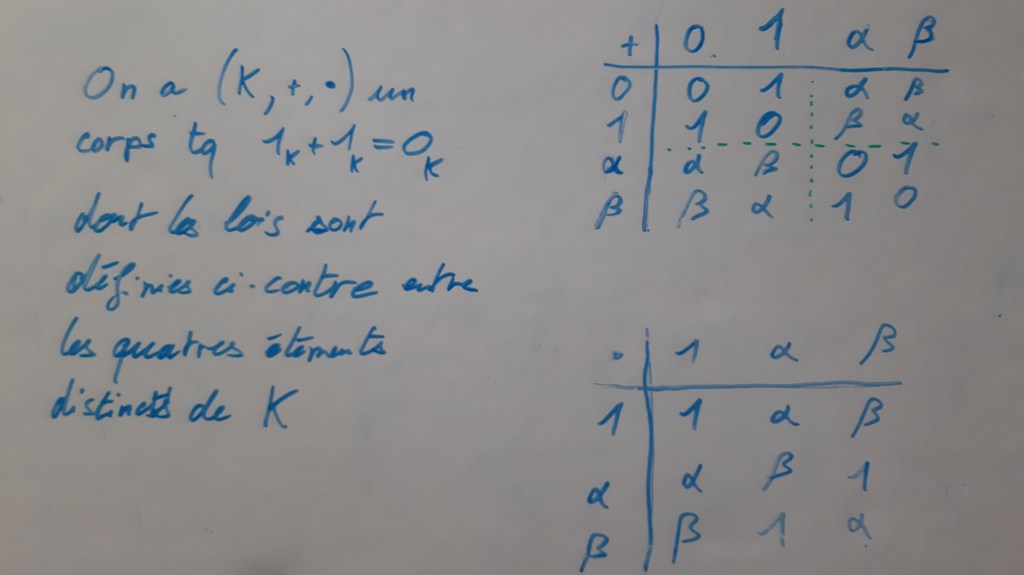 On a (K, +, •) un
corps tq 1K + 1K = 0K
dont les lois sont
définies ci-contre entre
les quatres éléments
distincts de K
+ | 0 1 α β
0 | 0 1 α β
1 | 1 0 β α
α | α β 0 1
β | β α 1 0
• | 1 α β
1 | 1 α β
α | α β 1
β | β 1 α